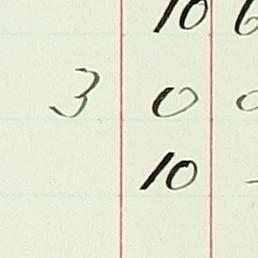 10 6
3 0 0
10 -